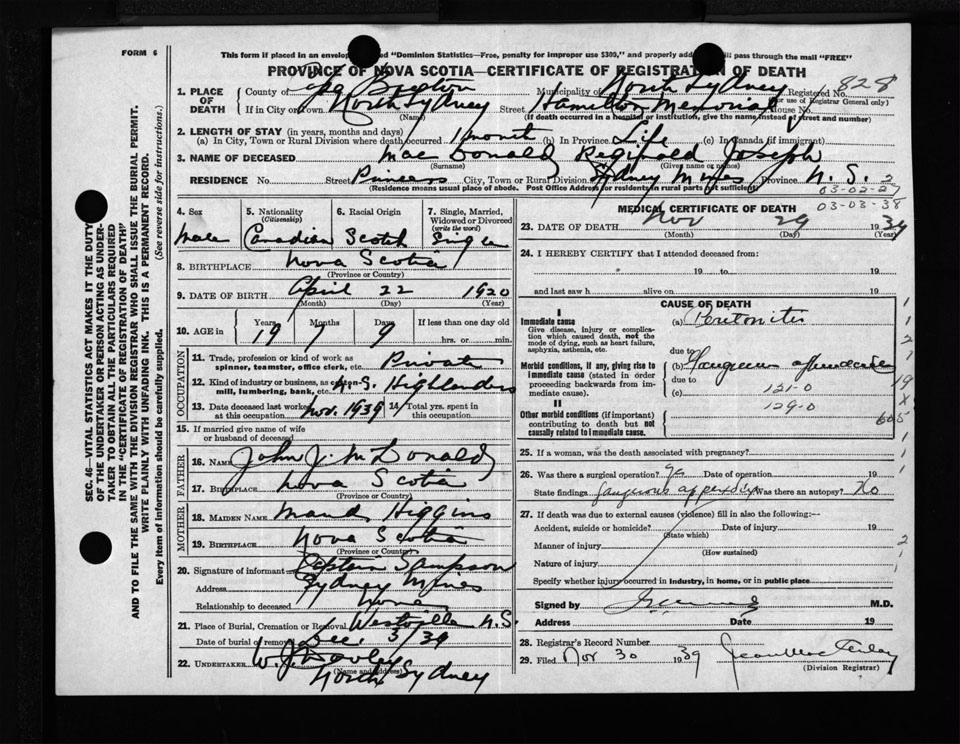 FORM 6
This form if placed in an envelope marked "Dominion Statistics—Free, penalty for improper use $300," and properly addressed will pass through the mail "FREE"
PROVINCE OF NOVA SCOTIA—CERTIFICATE OF REGISTRATION OF DEATH
828
1. PLACE OF DEATH County of Cape Breton Municipality of North Sydney Registered No. (For use of Registrar General only)
If in City or Town North Sydney (Name) Street Hamilton Memorial House No.
(If death occurred in a hospital or institution, give the name instead of street and number)
2. LENGTH OF STAY (in years, months and days)
(a) In City, Town or Rural Division where death occurred 1 month (b) In Province Life (c) In Canada (if immigrant)
3. NAME OF DECEASED Mac Donald Reginald Joseph
(Surname) (Given name or names)
RESIDENCE No. Street Princess City, Town or Rural Division Sydney Mines Province N.S. 2
(Residence means usual place of abode. Post Office Address for residents in rural parts not sufficient)
03-02-27
03-03-38
4. Sex Male
5. Nationality (Citizenship) Canadian
6. Racial Origin Scotch
7. Single, Married, Widowed or Divorced (write the word) Single
8. BIRTHPLACE Nova Scotia
(Province or Country)
9. DATE OF BIRTH April 22 1920
(Month) (Day) (Year)
10. AGE in Years 19 Months 7 Days 9 If less than one day old hrs. or min.
OCCUPATION
11. Trade, profession or kind of work as spinner, teamster, office clerk, etc. Private
12. Kind of industry or business, as cotton-mill, lumbering, bank, etc. Highlanders
13. Date deceased last worked at this occupation Nov. 1939 14. Total yrs. spent in this occupation
15. If married give name of wife or husband of deceased
FATHER
16. NAME John J. McDonald
17. BIRTHPLACE Nova Scotia
(Province or Country)
MOTHER
18. MAIDEN NAME Maud Higgins
19. BIRTHPLACE Nova Scotia
(Province or Country)
20. Signature of informant Captain Sampson
Address Sydney Mines
Relationship to deceased None
21. Place of Burial, Cremation or Removal Westville N.S.
Date of burial or removal Dec. 3/39
22. UNDERTAKER W.J. Dooley
(Name and address)
North Sydney
MEDICAL CERTIFICATE OF DEATH
23. DATE OF DEATH Nov 29 1939
(Month) (Day) (Year)
24. I HEREBY CERTIFY that I attended deceased from:
19 to 19
and last saw h alive on 19
CAUSE OF DEATH
I
Immediate cause (a) Peritonitis
Give disease, injury or complication which caused death, not the mode of dying, such as heart failure, asphyxia, asthenia, etc.
due to
Morbid conditions, if any, giving rise to immediate cause (stated in order proceeding backwards from immediate cause). (b)
due to
(c) 121-0
129-0
II
Other morbid conditions (if important) contributing to death but not causally related to immediate cause.
25. If a woman, was the death associated with pregnancy?
26. Was there a surgical operation? Yes Date of operation 19
State findings Was there an autopsy? No
27. If death was due to external causes (violence) fill in also the following:—
Accident, suicide or homicide? Date of injury 19
(State which)
Manner of injury
(How sustained)
Nature of injury
Specify whether injury occurred in industry, in home, or in public place
Signed by M.D.
Address Date 19
28. Registrar's Record Number
29. Filed Nov 30 1939
(Division Registrar)
SEC. 46—VITAL STATISTICS ACT MAKES IT THE DUTY
OF THE UNDERTAKER OR PERSON ACTING AS UNDER-
TAKER TO OBTAIN ALL THE PARTICULARS REQUIRED
IN THE "CERTIFICATE OF REGISTRATION OF DEATH"
AND TO FILE THE SAME WITH THE DIVISION REGISTRAR WHO SHALL ISSUE THE BURIAL PERMIT.
WRITE PLAINLY WITH UNFADING INK. THIS IS A PERMANENT RECORD.
Every item of information should be carefully supplied. (See reverse side for instructions.)